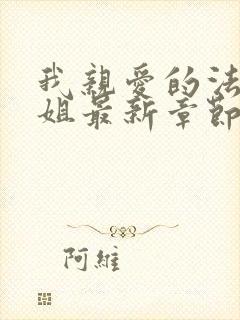 我親愛的法
姐最新章節
阿維